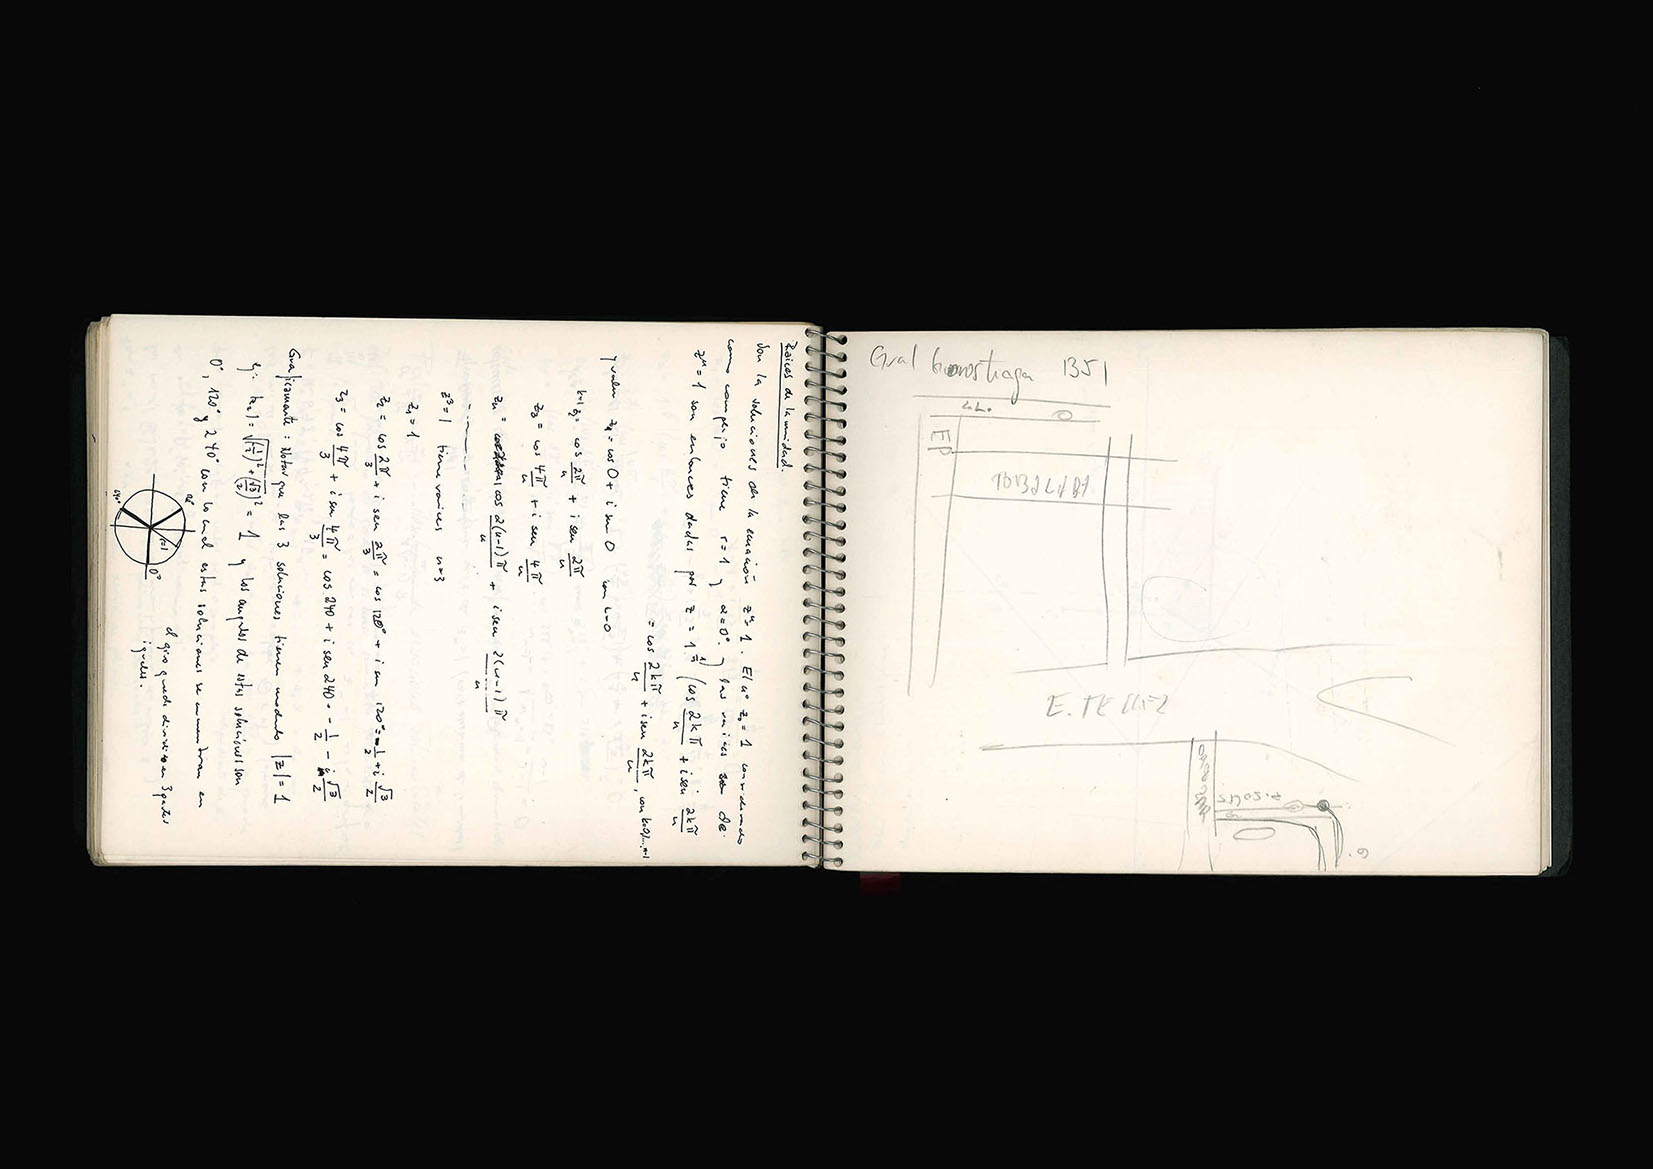 Raices de la unidad.
Son la soluciones de la ecuación zⁿ = 1. El nº z₀ = 1 considerado
como complejo tiene r = 1 y α = 0°. y las raices de
zⁿ = 1 son entonces dadas por z = 1^(1/n) (cos 2kπ/n + i sen 2kπ/n
= cos 2kπ/n + i sen 2kπ/n, con k=0,1,...,n-1
y valen z₁ = cos 0 + i sen 0 con k=0
k=1 z₂ = cos 2π/n + i sen 2π/n
z₃ = cos 4π/n + i sen 4π/n
zₙ = cos 2(n-1)π/n + i sen 2(n-1)π/n
z³=1 tiene raices n=3
z₁ = 1
z₂ = cos 2π/3 + i sen 2π/3 = cos 120° + i sen 120 = -1/2 + i √3/2
z₃ = cos 4π/3 + i sen 4π/3 = cos 240 + i sen 240 = -1/2 - i √3/2
Graficamente: Notar que las 3 soluciones tienen modulo |z| = 1
ej: |z₂| = √((1/2)² + (√3/2)²) = 1 y los angulos de estas soluciones son
0°, 120° y 240° con lo cual estas soluciones se encuentran en
0°
el giro queda dividido en 3 partes
iguales.
Gral Gorostiaga 1351
EP
E. TELLEZ